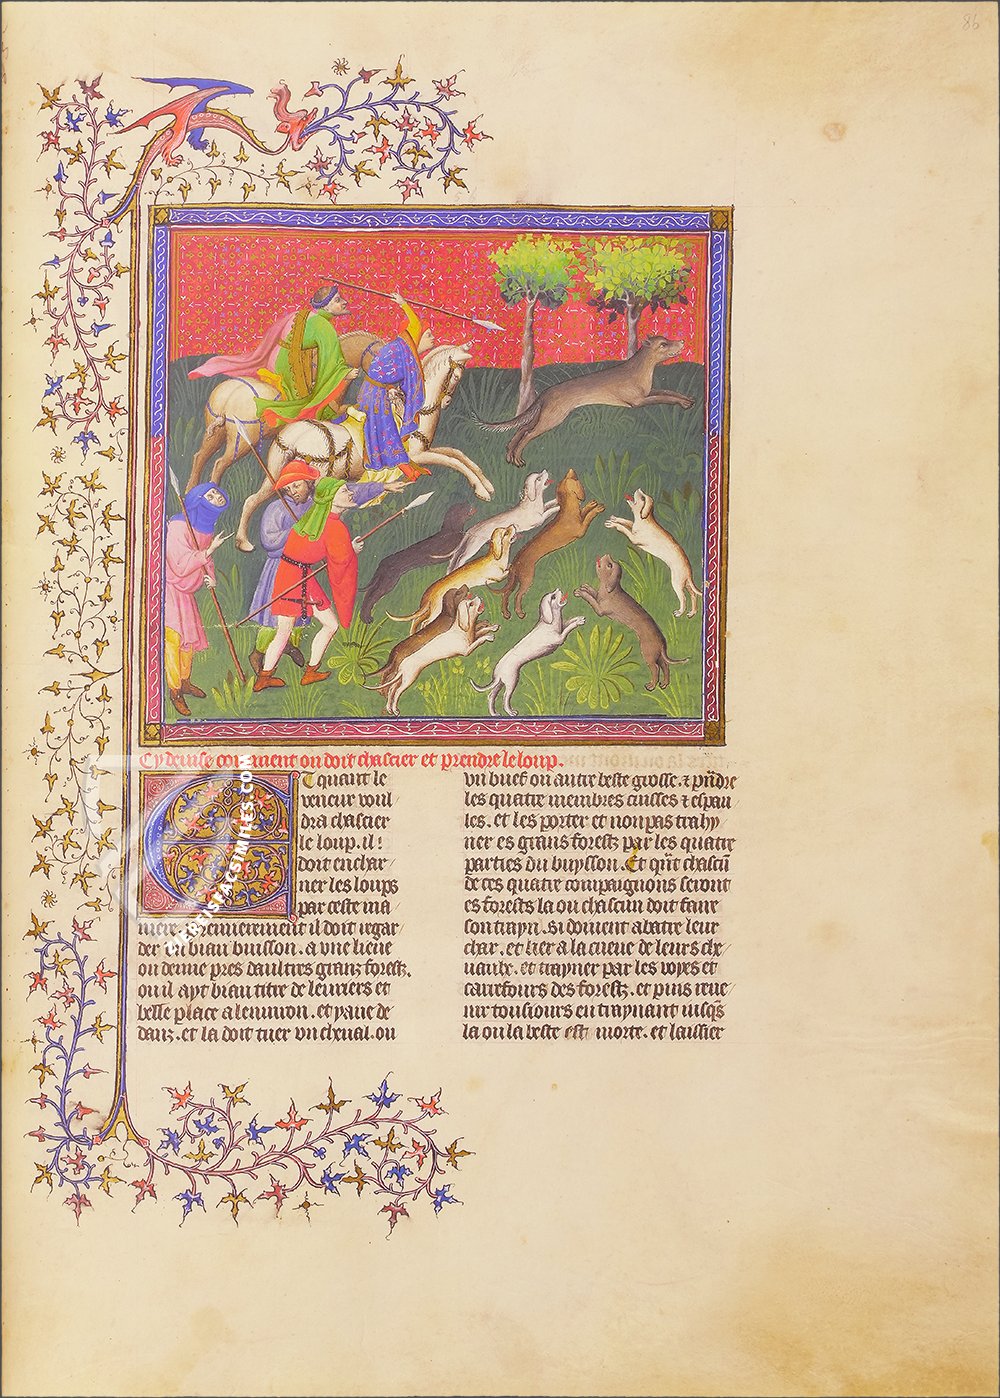 86
Cy devise comment on doit chascier et prendre le loup.
Et quant le
veneur voul
dra chascier
le loup. il
doit enchar
ner les loups
par ceste ma
niere. premierement il doit regar
der un biau buisson. a une lieue
ou demie pres daultres granz forestz.
ou il ayt biau titre de levriers et
belle place alenviron. et yaue de
danz. et la doit tuer un cheval. ou
un buef ou autre beste grosse. et prendre
les quatre membres cuisses et espau
les. et les porter et non pas trahy
ner es grans forestz par les quatre
parties du buysson. Et quant chascun
de ces quatre compaignons seront
es forestz la ou chascun doit faire
son trayn. si doivent abatre leur
char. et lier a la cueue de leurs che
vaulx. et trayner par les voyes et
carrefours des forestz. et puis reve
nir tousiours en traynant iusques
la ou la beste est morte. et laissier
ZIEREISFACSIMILES.COM